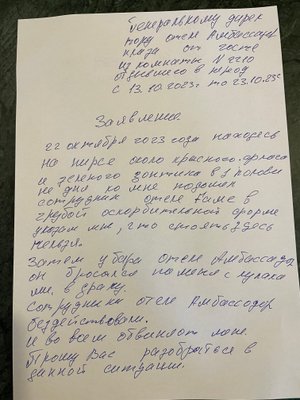 Генеральному дирек
тору отеля Амбассадор
плаза от гостя
из комнаты N 2210
отдыхавшего в период
с 13.10.2023г по 23.10.23г
Заявление
22 октября 2023 года находясь
на пирсе около красного флага
и зеленого зонтика в 1 полови
не дня ко мне подошел
сотрудник отеля Fame в
грубой оскорбительной форме
указал мне, что стоять здесь
нельзя.
Затем у бара отеля Амбассадор
он бросался на меня с кулака
ми, в драку.
Сотрудники отеля Амбассадор
бездействовали.
И во всем обвиняют меня.
Прошу Вас разобраться в
данной ситуации.